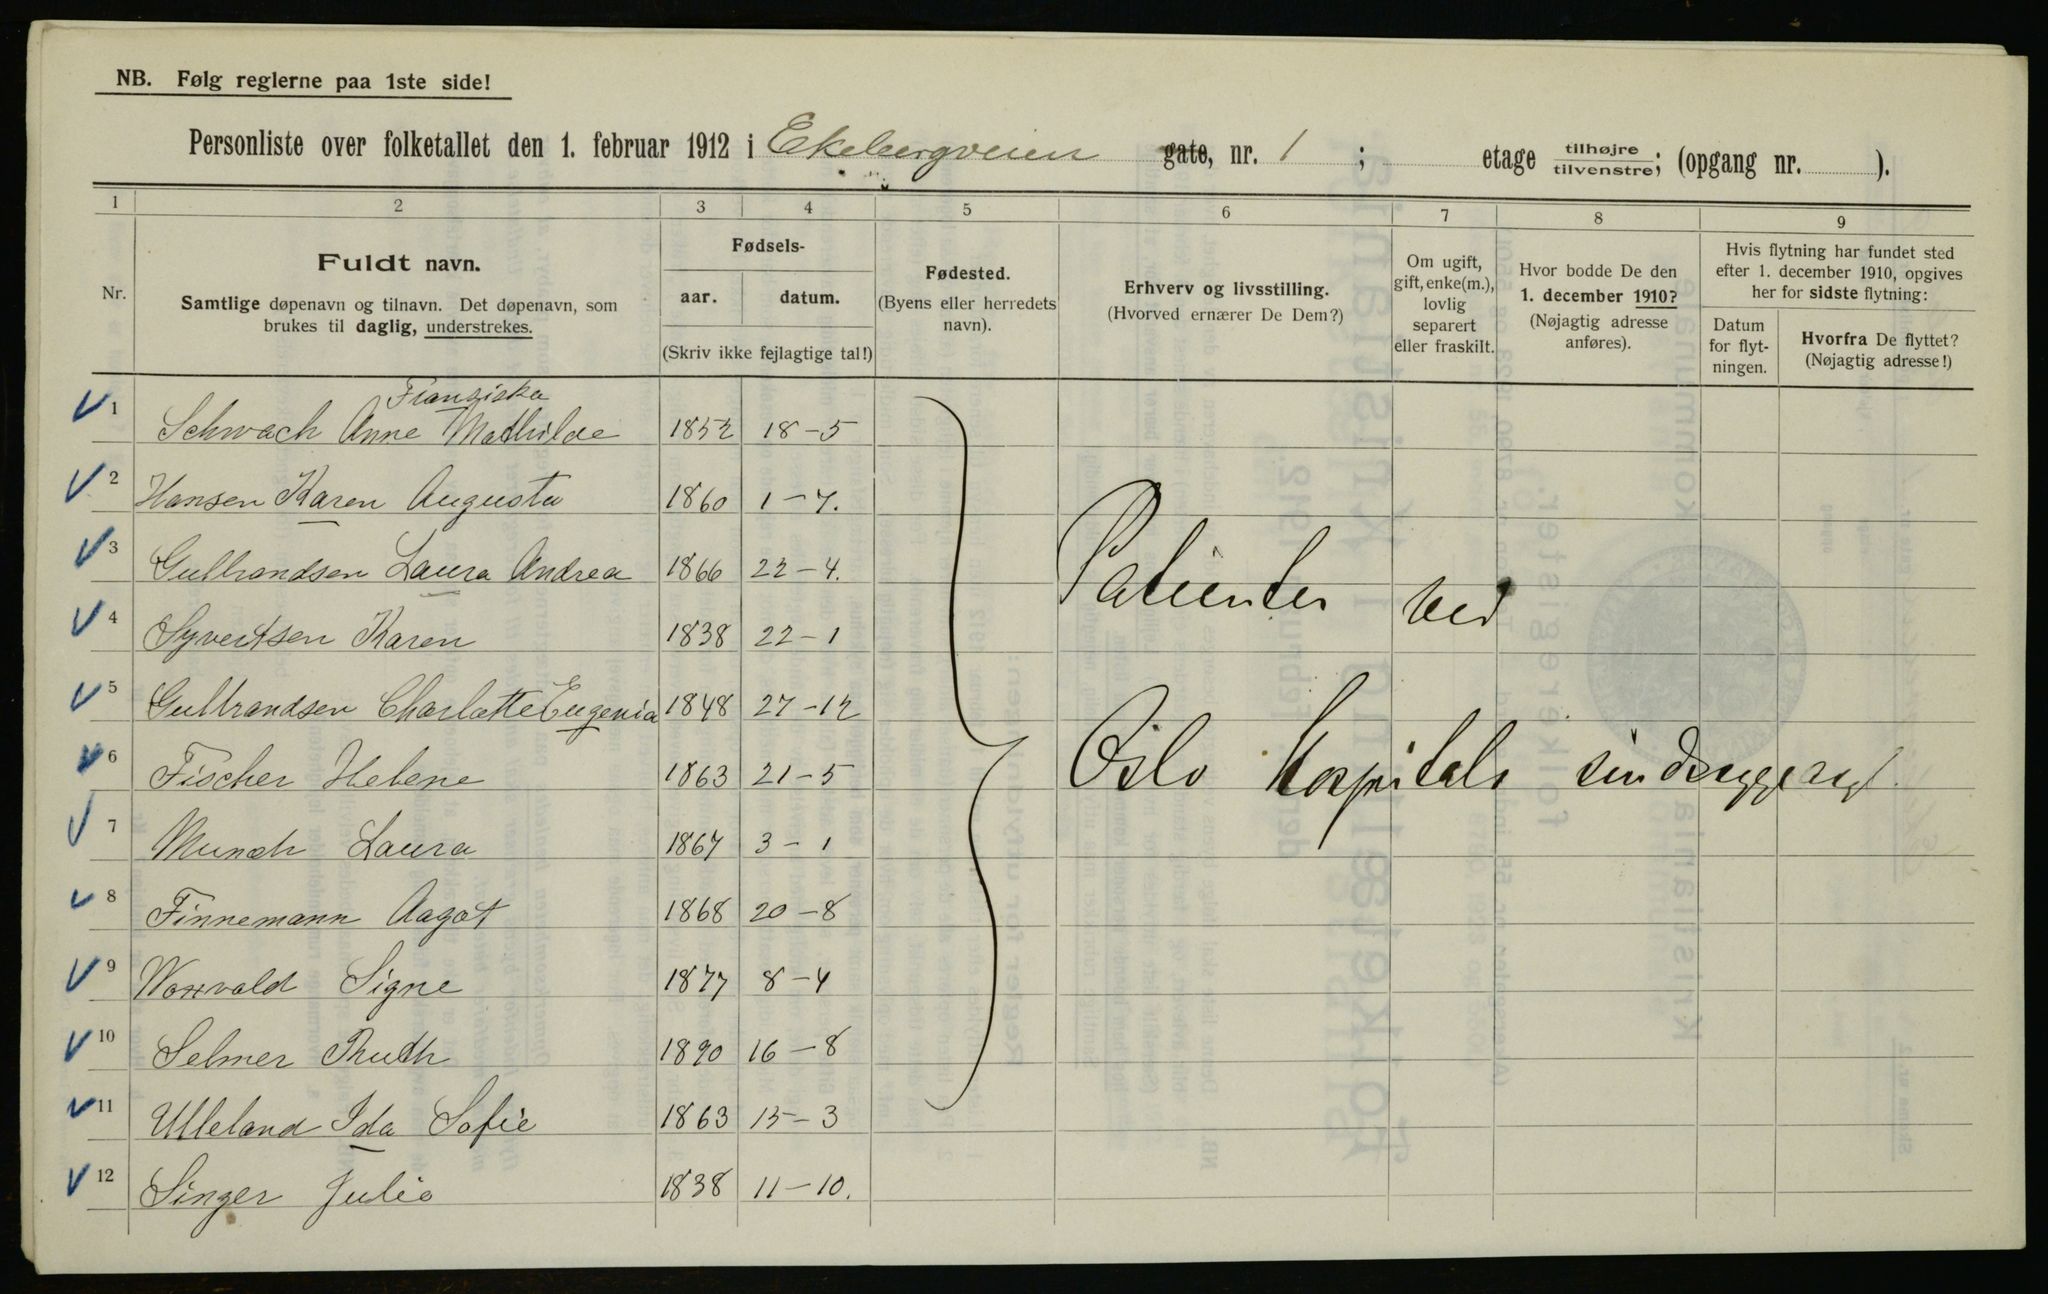 NB. Følg reglerne paa 1ste side!
Personliste over folketallet den 1. februar 1912 i Ekebergveien gate, nr. 1 ; etage tilhøjre tilvenstre; (opgang nr. ).
1 2 3 4 5 6 7 8 9
Nr.
Fuldt navn.
Samtlige døpenavn og tilnavn. Det døpenavn, som
brukes til daglig, understrekes.
Fødsels-
aar. datum.
(Skriv ikke fejlagtige tal!)
Fødested.
(Byens eller herredets
navn).
Erhverv og livsstilling.
(Hvorved ernærer De Dem?)
Om ugift,
gift, enke(m.),
lovlig
separert
eller fraskilt.
Hvor bodde De den
1. december 1910?
(Nøjagtig adresse
anføres).
Hvis flytning har fundet sted
efter 1. december 1910, opgives
her for sidste flytning:
Datum
for flyt-
ningen.
Hvorfra De flyttet?
(Nøjagtig adresse!)
Franziska
1 Schwach Anne Mathilde 1852 18-5
2 Hansen Karen Augusta 1860 1-7.
3 Gulbrandsen Laura Andrea 1866 22-4.
Patienter ved
4 Syvertsen Karen 1838 22-1
5 Gulbrandsen Charlotte Eugenia 1848 27-12
6 Fischer Helene 1863 21-5
Oslo Hospitals sindssygeasyl.
7 Munch Laura 1867 3-1
8 Finnemann Aagot 1868 20-8
9 Worvald Signe 1877 8-4
10 Selmer Ruth 1890 16-8
11 Ulleland Ida Sofie 1863 15-3
12 Singer Julie 1838 11-10.